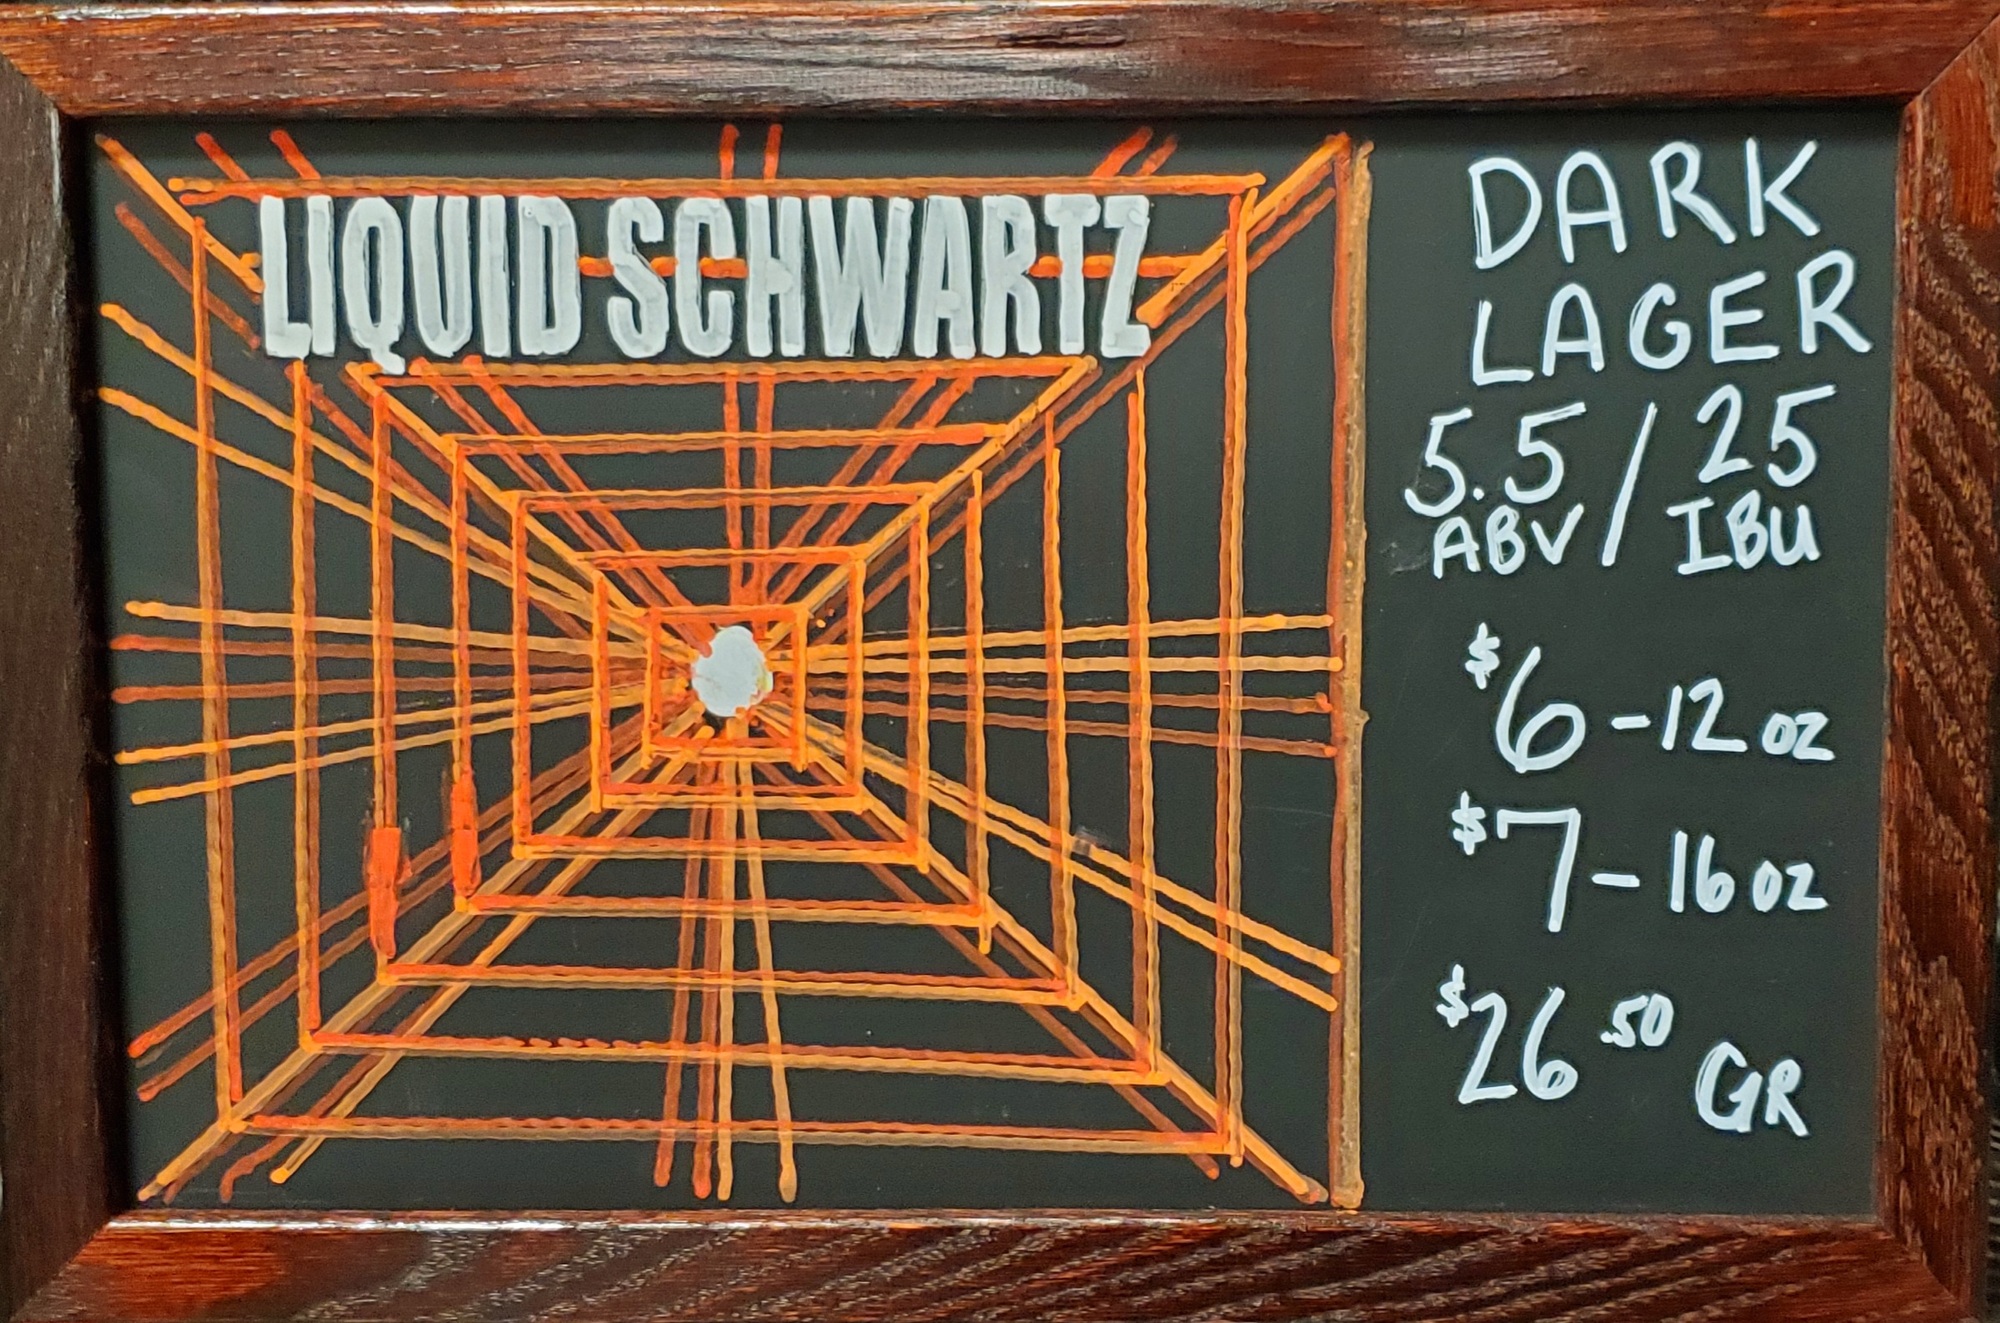 LIQUID SCHWARTZ
DARK
LAGER
5.5 / 25
ABV / IBU
$6 - 12 oz
$7 - 16 oz
$26.50 GR